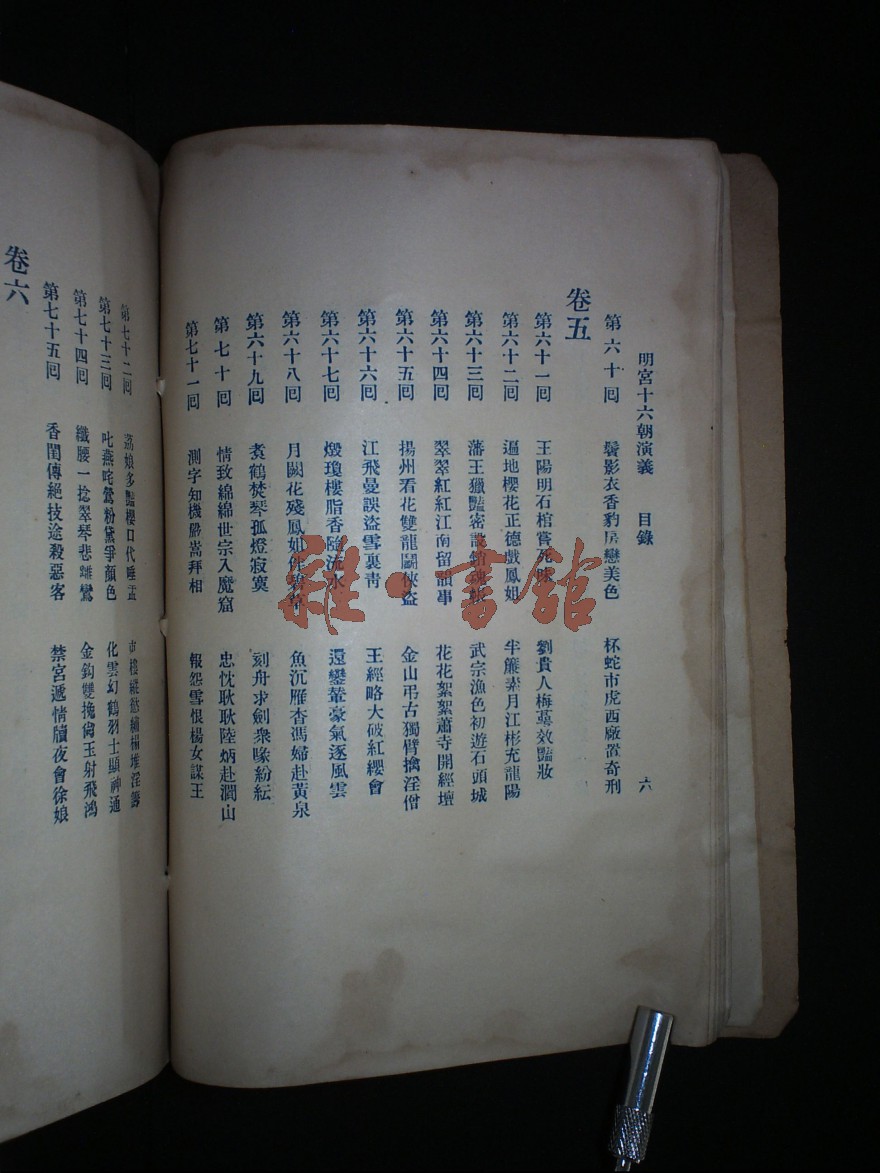 明宮十六朝演義　目錄　六
第六十回　鬢影衣香豹房戀美色　杯蛇市虎西廠置奇刑
卷五
第六十一回　王陽明石棺嘗死味　劉貴人梅萼效豔妝
第六十二回　遍地櫻花正德戲鳳姐　半簾素月江彬充龍陽
第六十三回　藩王獵豔密　武宗漁色初遊石頭城
第六十四回　翠翠紅紅江南留韻事　花花絮絮蕭寺開經壇
第六十五回　揚州看花雙龍鬭俠盜　金山弔古獨臂擒淫僧
第六十六回　江飛曼誤盜雪裏青　王經略大破紅纓會
第六十七回　燬瓊樓脂香隨流水　還鑾輦豪氣逐風雲
第六十八回　月闕花殘鳳姐　魚沉雁杳馮婦赴黃泉
第六十九回　煮鶴焚琴孤燈寂寞　刻舟求劍衆喙紛紜
第七十回　情致綿綿世宗入魔窟　忠忱耿耿陸炳赴澗山
第七十一回　測字知機嚴嵩拜相　報怨雪恨楊女謀王
第七十二回　荔娘多豔櫻口代唾盂　市棧縱慾繡榻堆淫籌
第七十三回　叱燕咤鶯粉黛爭顏色　化雲幻鶴羽士顯神通
第七十四回　纖腰一捻翠琴悲離鸞　金鈎雙挽尙玉射飛鴻
第七十五回　香閨傳絕技途殺惡客　禁宮遞情牘夜會徐娘
卷六
雜·書館